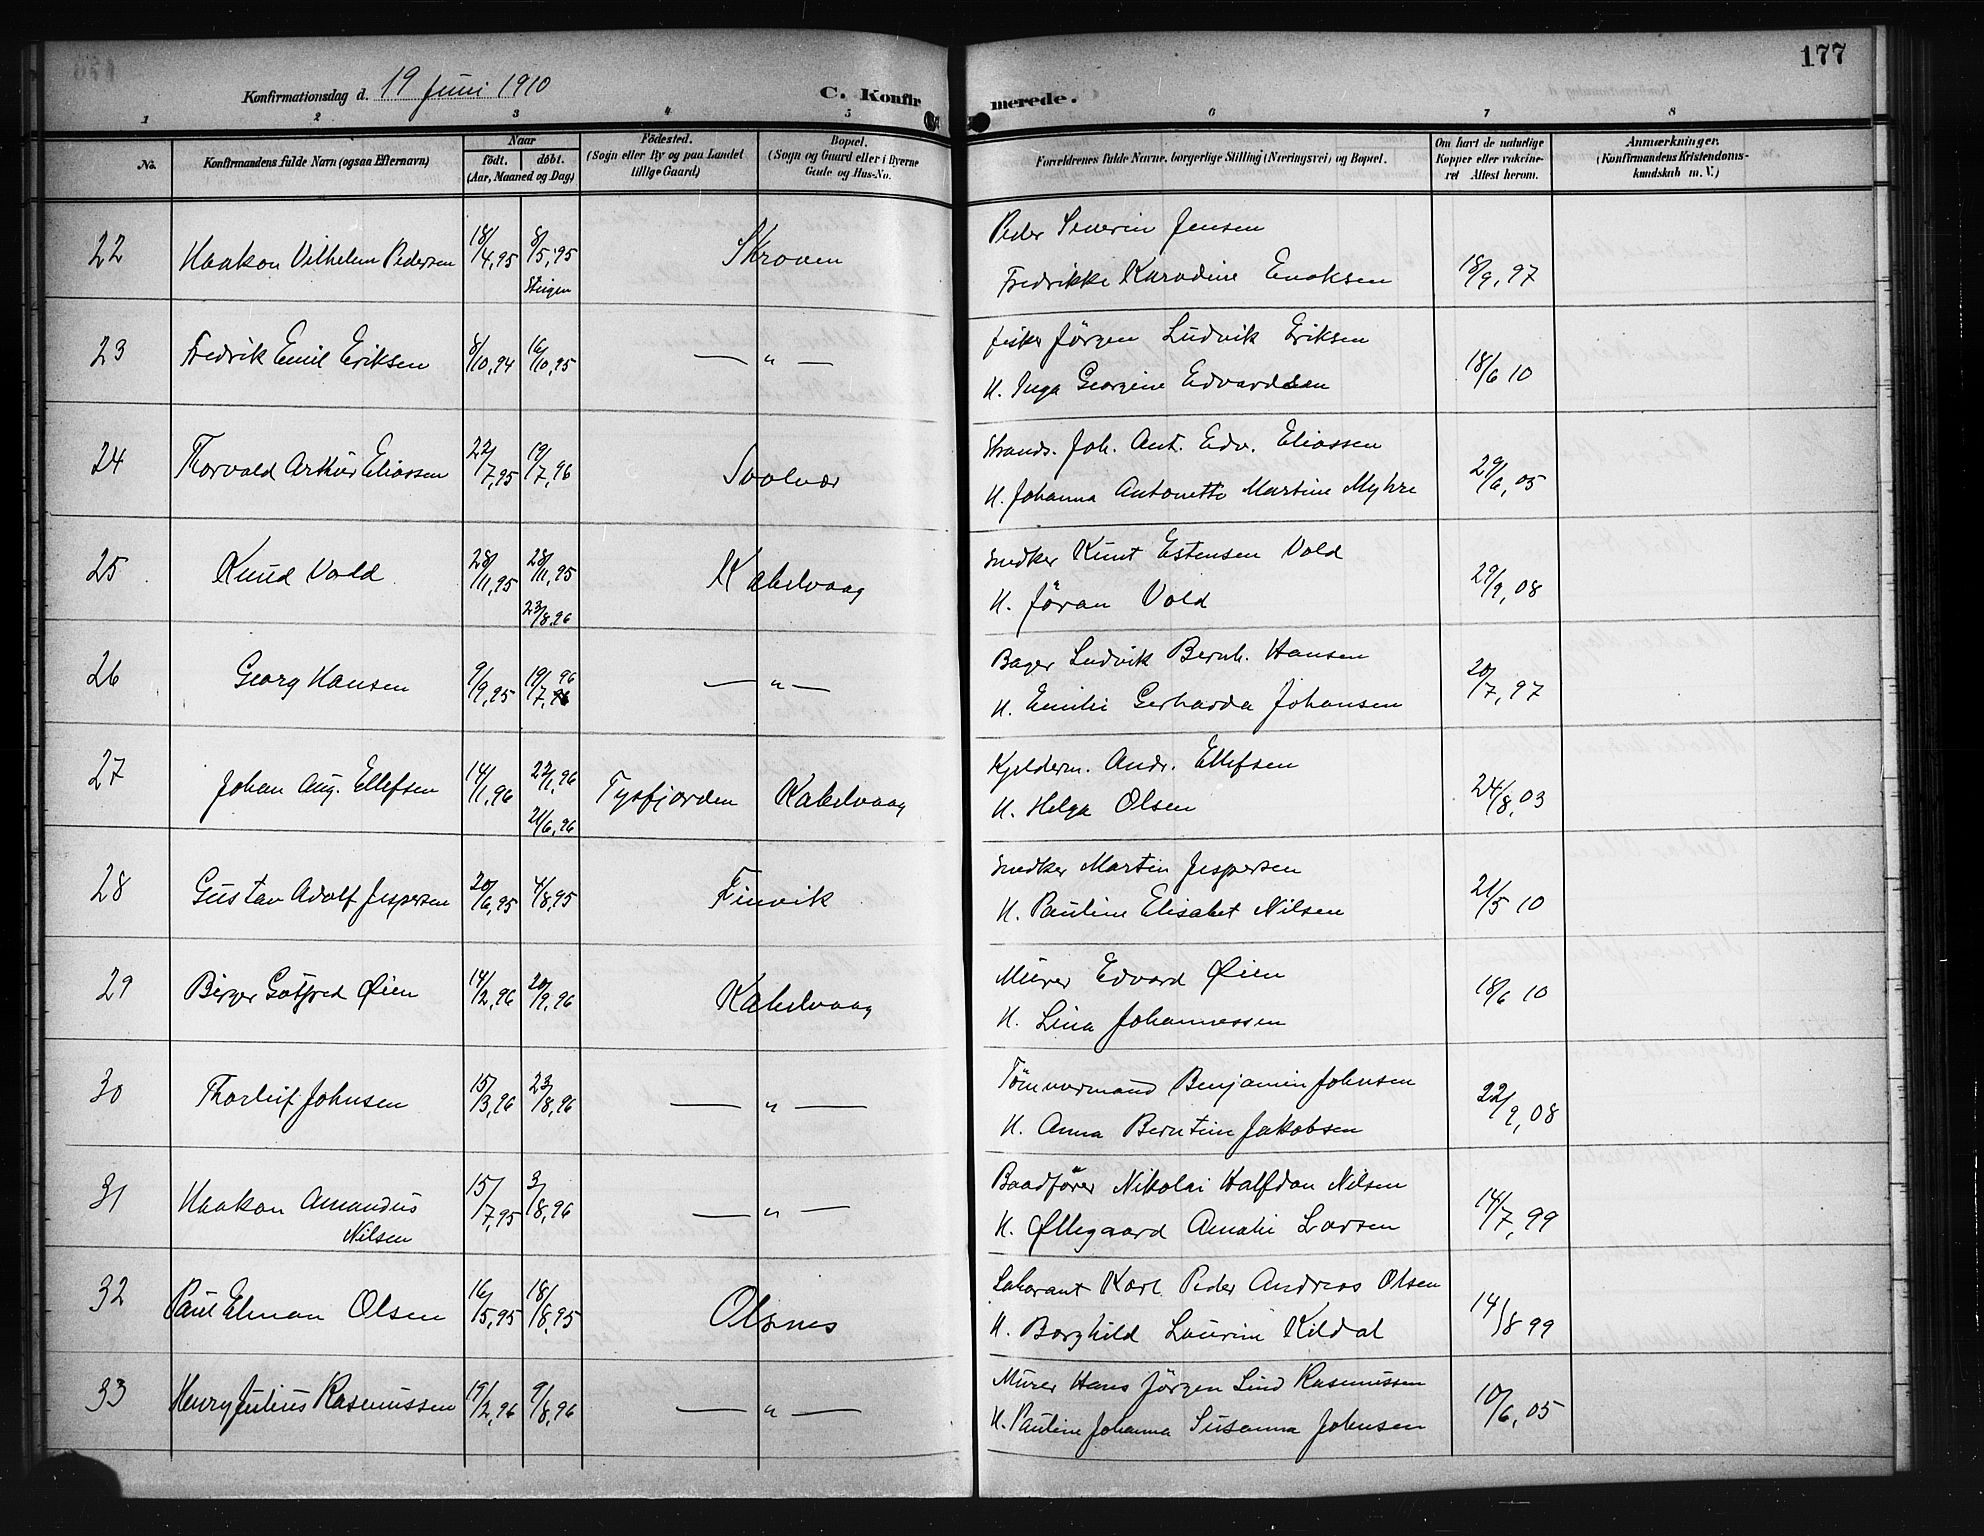 177
Konfirmationsdag d. 19 Juni 1910
C. Konfirmerede.
1 2 3 4 5 6 7 8
No. Konfirmandens fulde Navn (ogsaa Efternavn) Naar født. døbt. (Aar, Maaned og Dag) Fødested. (Sogn eller By og paa Landet tillige Gaard) Bopæl. (Sogn og Gaard eller i Byerne Gade og Hus-No. Forældrenes fulde Navne, borgerlige Stilling (Næringsvei) og Bopæl. Om havt de naturlige Kopper eller vakcineret Attest herom. Anmærkninger. (Konfirmandens Kristendomskundskab m. V.)
22 Haakon Vilhelm Pedersen 18/4,95 8/5,95 Steigen Skroven Peder Severin Jensen
Fredrikke Karodine Enoksen 18/9,97
23 Fredrik Emil Eriksen 8/10,94 16/10,95 — " — fisker Jörgen Ludvik Eriksen
H. Inga Georgine Edvardsen 18/6 10
24 Thorvald Arthur Eliassen 22/7,95 19/7,96 Svolvær Strands. Joh. Ant. Edv. Eliassen
H. Johanna Antonette Martine Myhre 29/6,05
25 Knud Vold 28/11,95 28/11,95 23/8,96 Kabelvaag Snedker Knut Estensen Vold
H. Jöran Vold 29/9,08
26 Georg Hansen 9/9,95 19/7,96 96 — " — Bager Ludvik Bernh. Hansen
H. Emilie Gerharda Johansen 20/7,97
27 Johan Aug. Ellefsen 14/1,96 22/1,96 21/6,96 Tysfjorden Kabelvaag Kjelderm. Andr. Ellefsen
H. Helga Olsen 24/8,03
28 Gustav Adolf Jespersen 20/6,95 4/8,95 Finvik Snedker Martin Jespersen
H. Pauline Elisabet Nilsen 21/5 10
29 Birger Gotfred Øien 14/2,96 20/9,96 Kabelvaag Murer Edvard Øien
H. Lina Johannessen 18/6 10
30 Thorleif Johnsen 15/3,96 23/8,96 — " — Tömmermand Benjamin Johnsen
H. Anna Berntine Jakobsen 22/9,08
31 Haakon Amandus
Nilsen 15/7,95 3/8,96 — " — Baadförer Nikolai Halfdan Nilsen
H. Øllegaard Amalie Larsen 14/7,99
32 Paul Elman Olsen 16/5,95 18/8,95 Olsnes Laborant Karl Peder Andreas Olsen
H. Borghild Laurine Kildal 14/8 99
33 Henry Julius Rasmussen 19/2,96 9/8,96 — " — Murer Hans Jörgen Lind Rasmussen
H. Pauline Johanna Susanna Johnsen 10/6,05